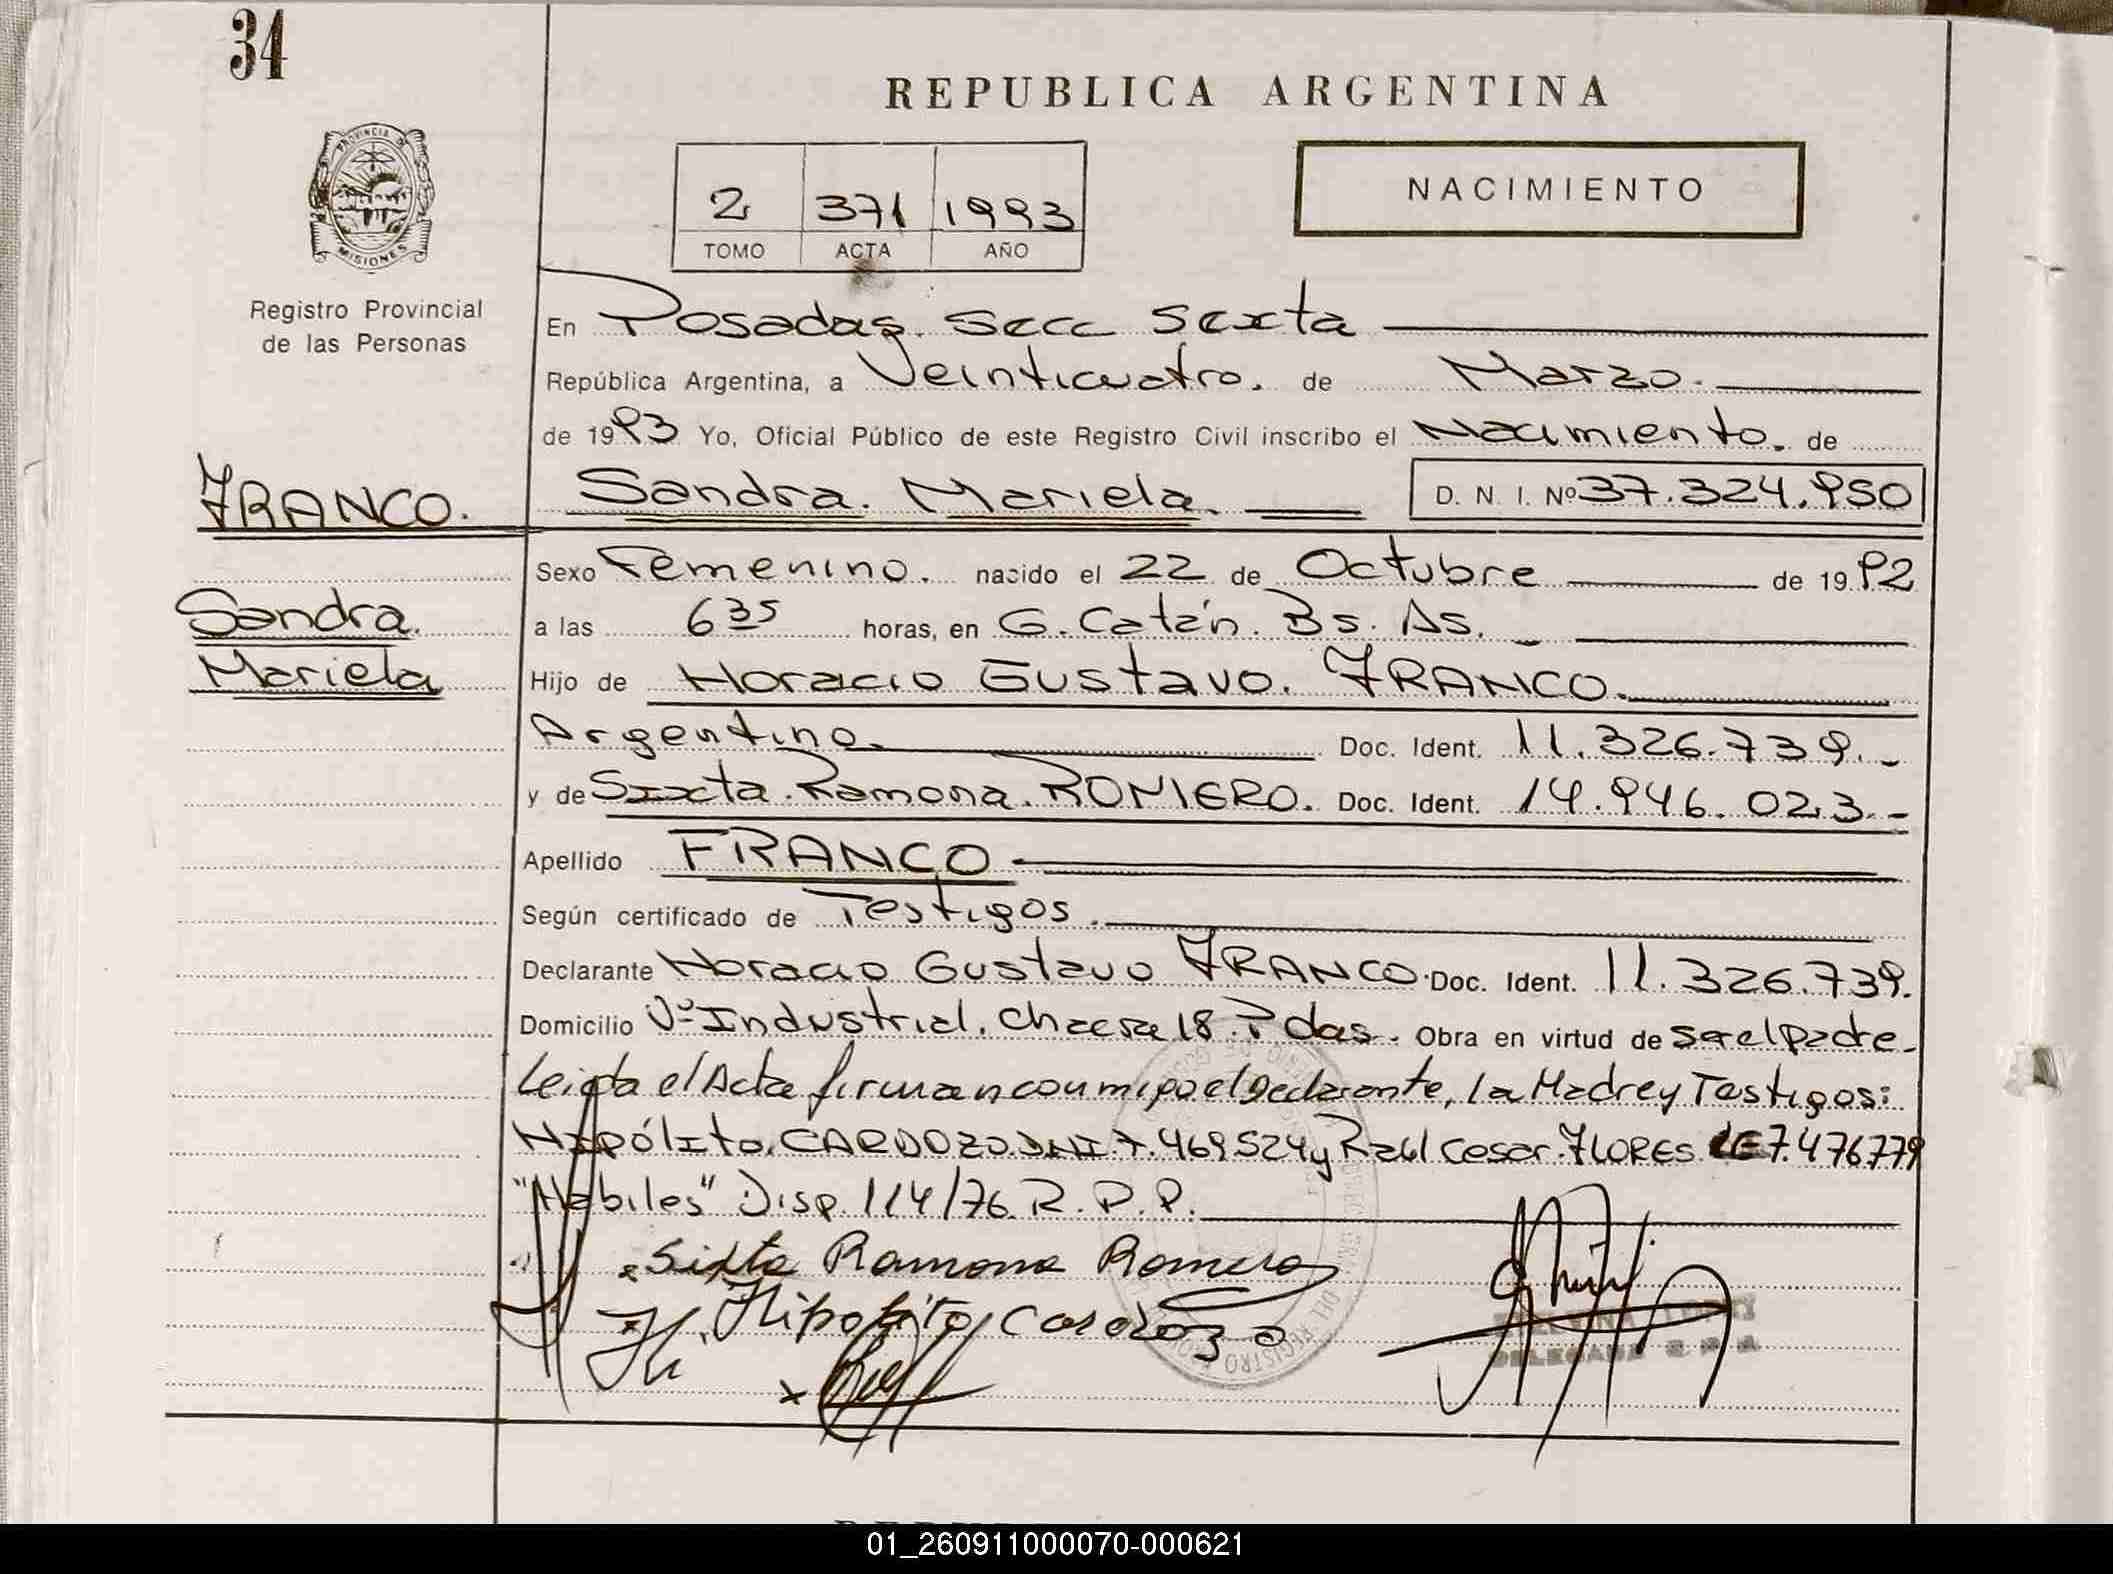 34
REPUBLICA ARGENTINA
PROVINCIA DE
MISIONES
2 371 1993
TOMO ACTA AÑO
NACIMIENTO
Registro Provincial
de las Personas
En Posadas. Secc Sexta
República Argentina, a Veinticuatro. de Marzo.
de 1993 Yo, Oficial Público de este Registro Civil inscribo el Nacimiento. de
FRANCO. Sandra. Mariela. D. N. I. Nº 37.324.950
Sexo Femenino. nacido el 22 de Octubre de 1992
Sandra. a las 6 35 horas, en G. Catán. Bs. As.
Mariela Hijo de Horacio Gustavo. FRANCO.
Argentino. Doc. Ident. 11.326.739.
y de Sixta Ramona. ROMERO. Doc. Ident. 14.946.023.-
Apellido FRANCO
Según certificado de Testigos.
Declarante Horacio Gustavo FRANCO. Doc. Ident. 11.326.739.
Domicilio Vº Industrial. Chacra 18. Pdas. Obra en virtud de ser el padre.
Leida el Acta firman conmigo el declarante, la Madre y Testigos:
Hipólito. CARDOZO DNI 7.469524 y Raúl Cesar. FLORES LE 7.476779
"Habiles" Disp. 114/76 R. P. P.
Sixta Ramona Romero
Hipolito Cardozo
DEL REGISTRO
01_260911000070-000621